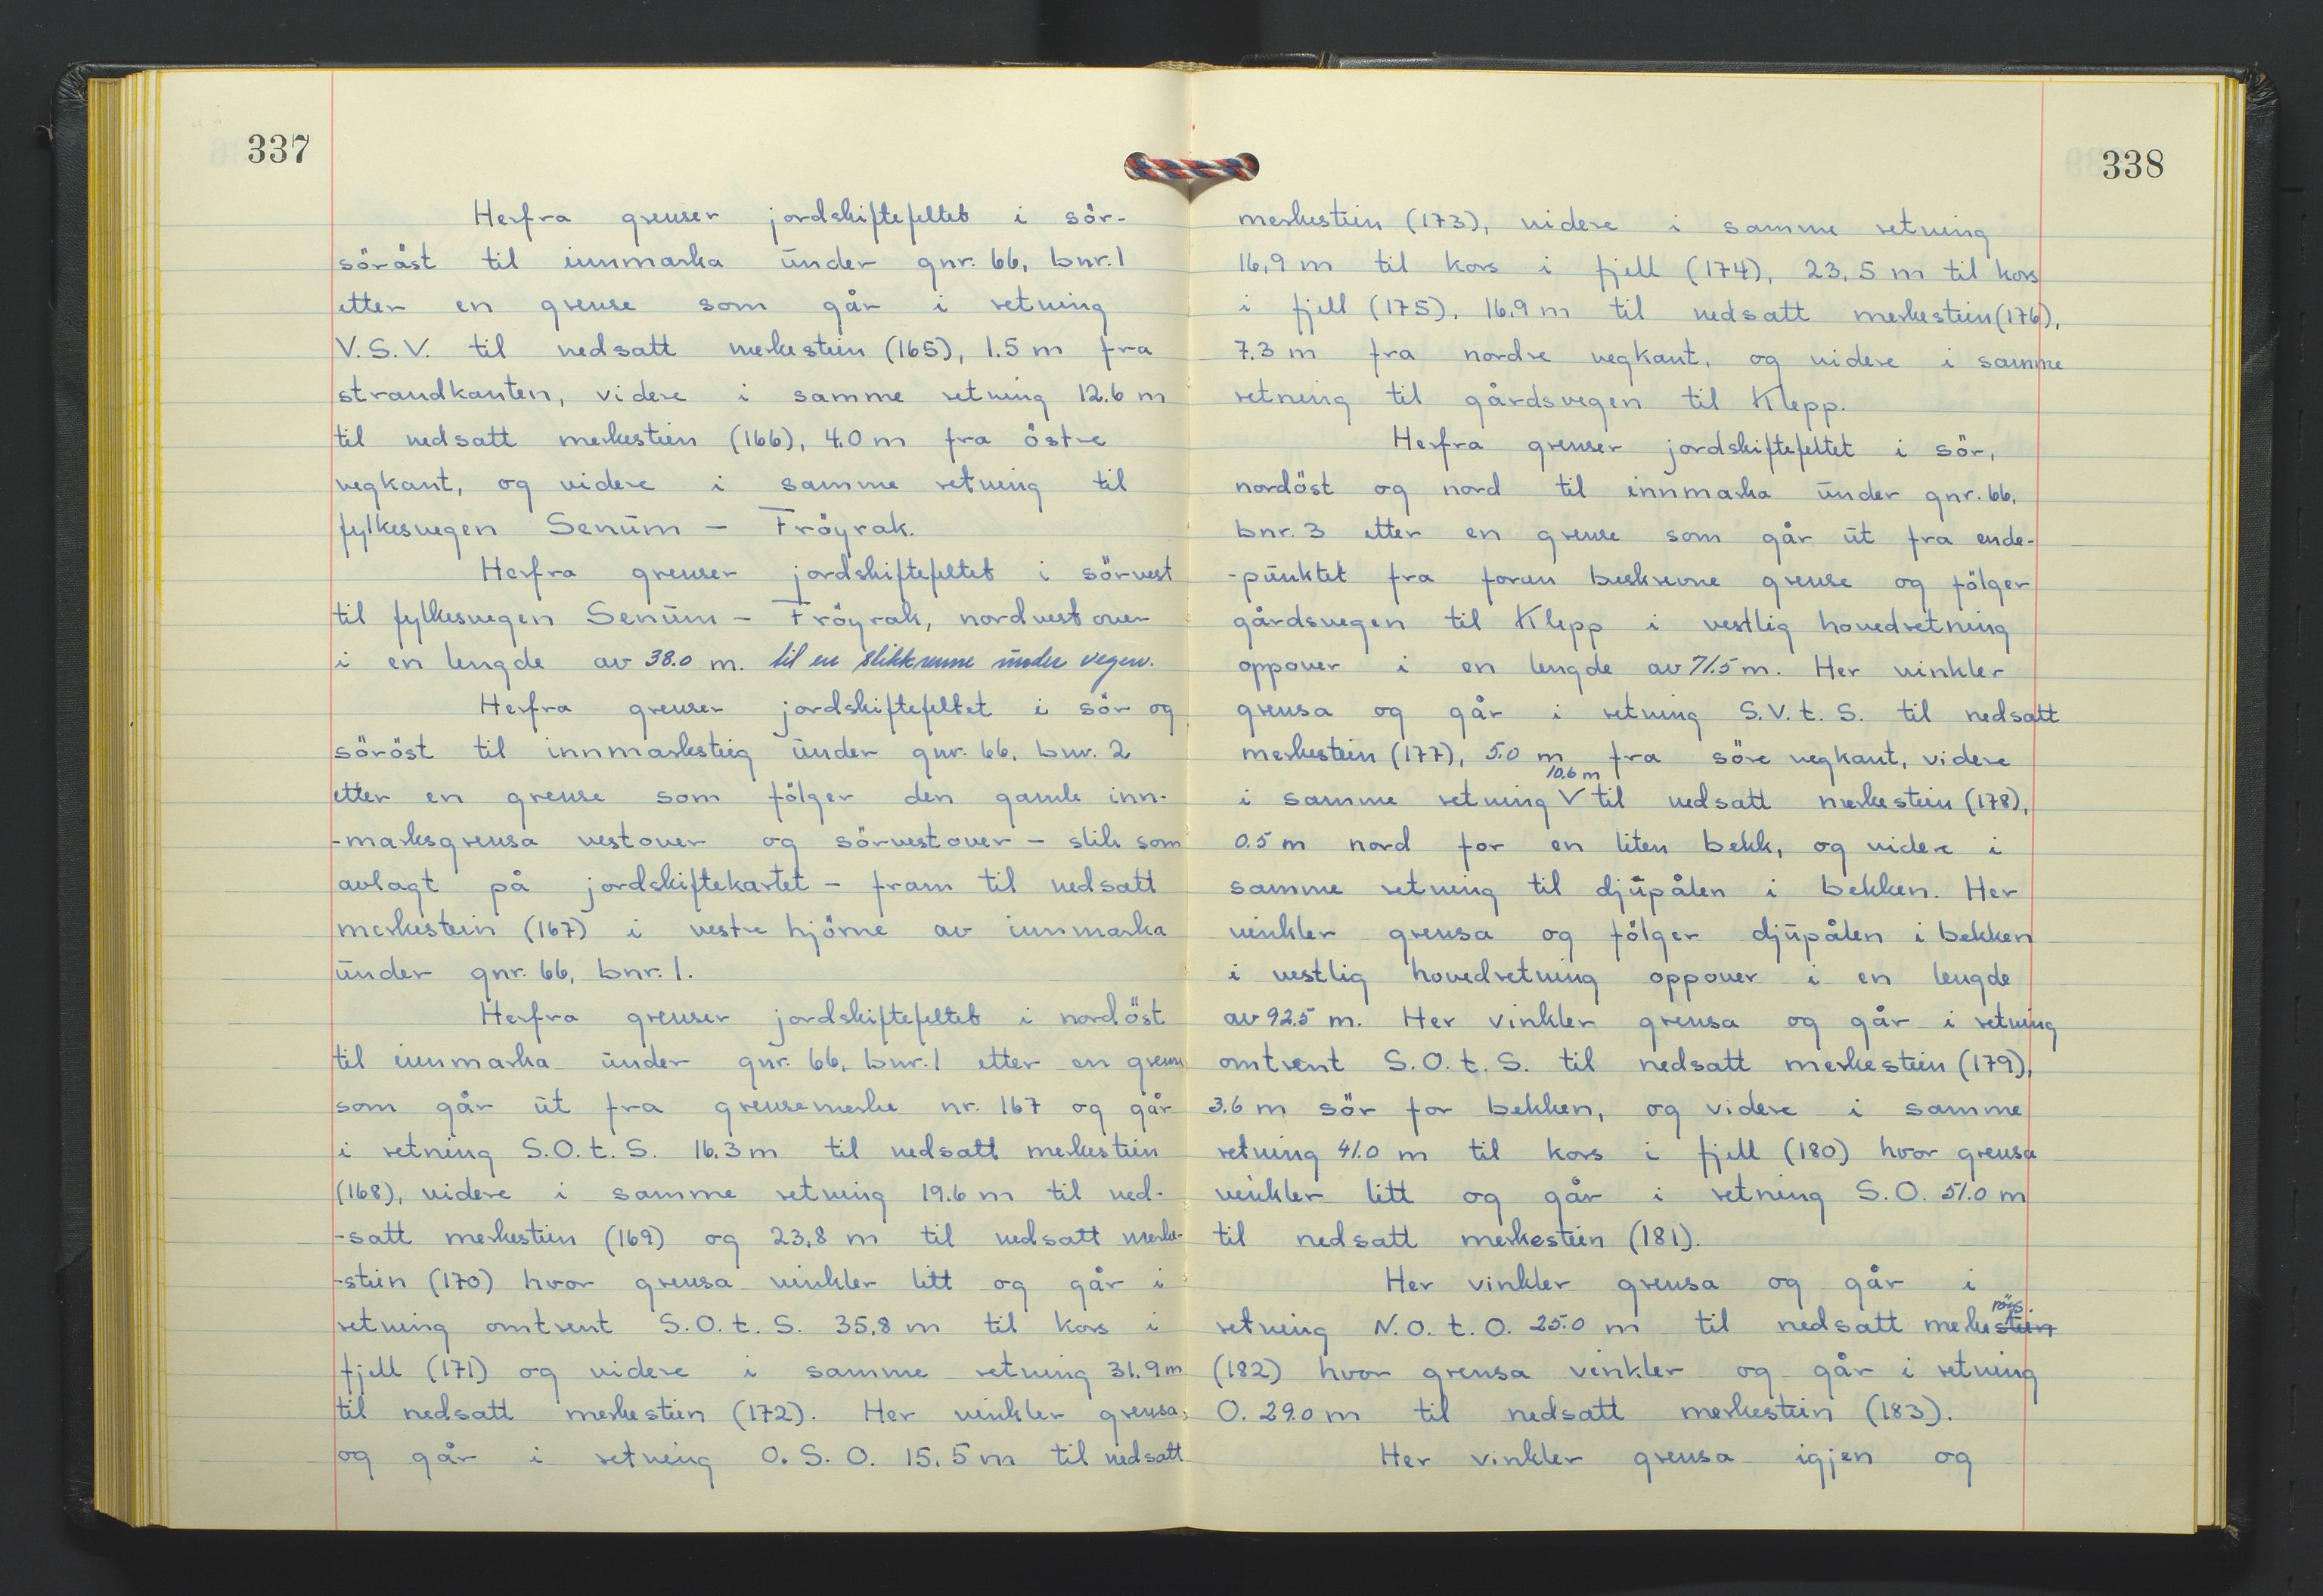 337
Herfra grenser jordskiftefeltet i sör-
söräst til innmarka under gnr. 66, bnr. 1
etter en grense som går i retning
V.S.V. til nedsatt merkestein (165), 1.5 m fra
strandkanten, videre i samme retning 12.6 m
til nedsatt merkestein (166), 4.0 m fra östre
vegkant, og videre i samme retning til
fylkesvegen Senum - Fröyrak.
Herfra grenser jordskiftefeltet i sörvest
til fylkesvegen Senum - Fröyrak, nordvestover
i en lengde av 38.0 m. til en stikkrenne under vegen.
Herfra grenser jordskiftefeltet i sör og
söröst til innmarksteig under gnr. 66, bnr. 2
etter en grense som fölger den gamle inn-
-marksgrensa vestover og sörvestover - slik som
avlagt på jordskiftekartet - fram til nedsatt
merkestein (167) i vestre hjörne av innmarka
under gnr. 66, bnr. 1.
Herfra grenser jordskiftefeltet i nordöst
til innmarka under gnr. 66, bnr. 1 etter en grense
som går ut fra grensemerke nr. 167 og går
i retning S.O.t.S. 16.3 m til nedsatt merkestein
(168), videre i samme retning 19.6 m til ned-
-satt merkestein (169) og 23,8 m til nedsatt merke-
-stein (170) hvor grensa vinkler litt og går i
retning omtrent S.O.t.S. 35,8 m til kors i
fjell (171) og videre i samme retning 31.9 m
til nedsatt merkestein (172). Her vinkler grensa,
og går i retning O.S.O. 15,5 m til nedsatt
338
merkestein (173), videre i samme retning
16,9 m til kors i fjell (174), 23,5 m til kors
i fjell (175), 16.9 m til nedsatt merkestein (176),
7.3 m fra nordre vegkant, og videre i samme
retning til gårdsvegen til Klepp.
Herfra grenser jordskiftefeltet i sör,
nordöst og nord til innmarka under gnr. 66,
bnr. 3 etter en grense som går ut fra ende-
-punktet fra foran beskrevne grense og fölger
gårdsvegen til Klepp i vestlig hovedretning
oppover i en lengde av 71.5 m. Her vinkler
grensa og går i retning S.V.t.S. til nedsatt
merkestein (177), 5.0 m fra söre vegkant, videre
10.6 m
i samme retning V til nedsatt merkestein (178),
0.5 m nord for en liten bekk, og videre i
samme retning til djupålen i bekken. Her
vinkler grensa og fölger djupålen i bekken
i vestlig hovedretning oppover i en lengde
av 92.5 m. Her vinkler grensa og går i retning
omtrent S.O.t.S. til nedsatt merkestein (179),
3.6 m sör for bekken, og videre i samme
retning 41.0 m til kors i fjell (180) hvor grensa
vinkler litt og går i retning S.O. 51.0 m
til nedsatt merkestein (181).
Her vinkler grensa og går i
röys.
retning N.O.t.O. 25.0 m til nedsatt merkestein
(182) hvor grensa vinkler og går i retning
O. 29.0 m til nedsatt merkestein (183).
Her vinkler grensa igjen og